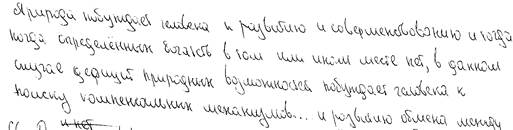 Природа побуждает человека к развитию и совершенствованию и тогда
когда определённых богатств в том или ином месте нет, в данном
случае дефицит природных возможностей побуждает человека к
поиску компенсальных механизмов... и развитию обмена между